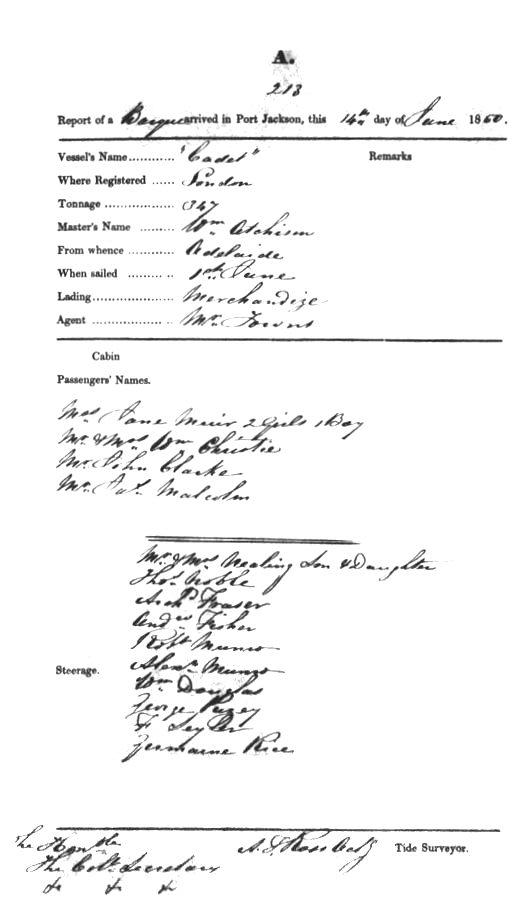 A.
213
Report of a Barque arrived in Port Jackson, this 14th day of June 1850.
Vessel's Name............ "Cadet"
Remarks
Where Registered ...... London
Tonnage .................. 347
Master's Name ......... Wm Atchison
From whence ............ Adelaide
When sailed ......... .. 1st June
Lading..................... Merchandize
Agent ..................... Mr. Towns
Cabin
Passengers' Names.
Mrs Jane Muir 2 Girls 1 Boy
Mr. & Mrs Wm Christie
Mr. John Clarke
Mr. Jas. Malcolm
Mr. & Mrs Nealing Son & Daughter
Thos. Noble
Archd Fraser
Andw Fisher
Robt Munro
Steerage.
Alexr Munro
Wm Douglas
George Puzey
F Seyler
Jermaine Rice
The Honble
The Coll. Secretary
&c &c &c
A. J. Ross Actg Tide Surveyor.